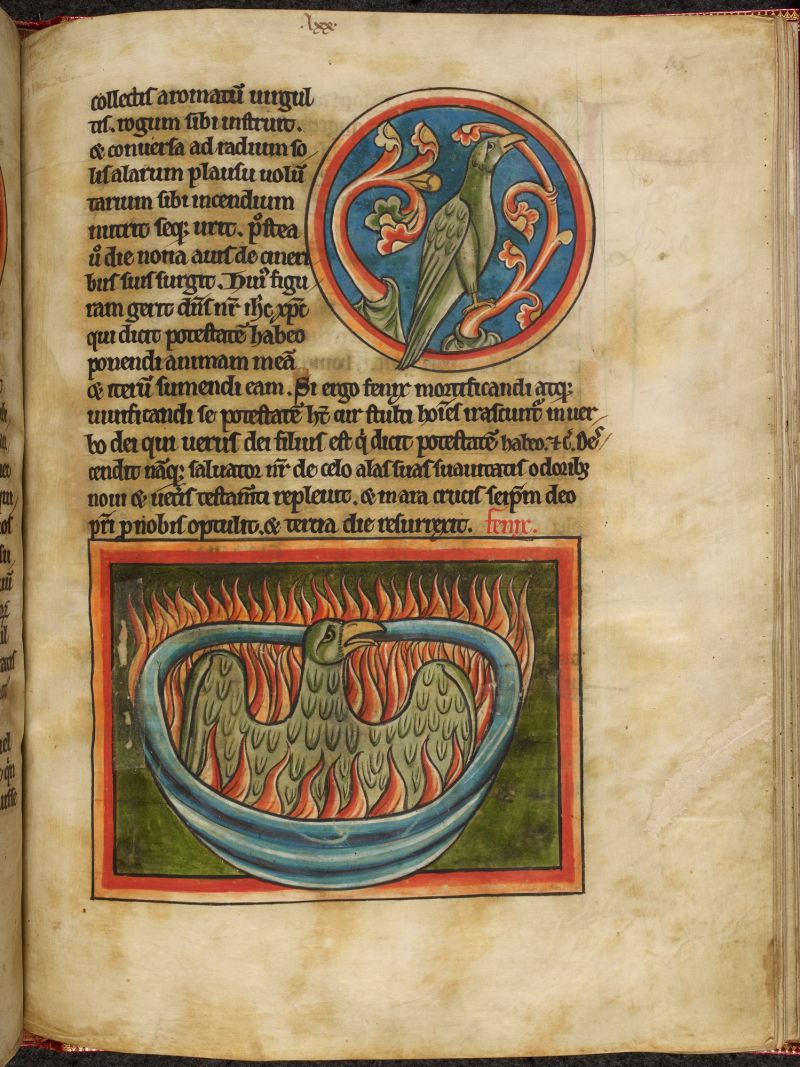 lxx.
collectis aromatū uirgul
tis. rogum sibi instruit.
& conuersa ad radium so
lis alarum plausu uolū
tarium sibi incendium
nutrit seq; urit. p̄ostea
ū die nona auis de cineri
bus suis surgit. Huiꝰ figu
ram gerit dn̄s nr̄ ih̄c xp̄c
qui dicit potestatē habeo
ponendi animam meā
& iterū sumendi eam. Si ergo fenix mortificandi atq;
uiuificandi se potestatē h̄t cur stulti hoīes irascunt̄ in uer
bo dei qui uerus dei filius est q̇ dicit potestatē habeo. ⁊ c̄. Des
cendit nāq; saluator nr̄ de celo alas suas suauitatis odoribꝫ
noui & ueteris testam̄ti repleuit. & in ara crucis seip̄m deo
pr̄i p nobis optulit. & tercia die resurrexit. fenix.